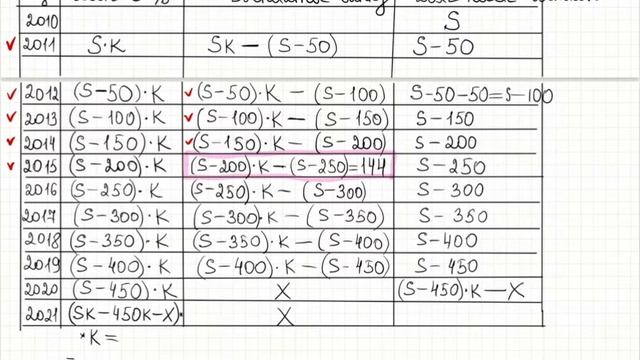 2010 S
✓ 2011 S·K SK – (S–50) S–50
✓ 2012 (S–50)·K ✓ (S–50)·K – (S–100) S–50–50=S–100
✓ 2013 (S–100)·K ✓ (S–100)·K – (S–150) S–150
✓ 2014 (S–150)·K ✓ (S–150)·K – (S–200) S–200
✓ 2015 (S–200)·K (S–200)·K–(S–250)=144 S–250
2016 (S–250)·K (S–250)·K – (S–300) S–300
2017 (S–300)·K (S–300)·K – (S–350) S–350
2018 (S–350)·K (S–350)·K – (S–400) S–400
2019 (S–400)·K (S–400)·K – (S–450) S–450
2020 (S–450)·K X (S–450)·K–X
2021 (SK–450K–X)· X
·K=